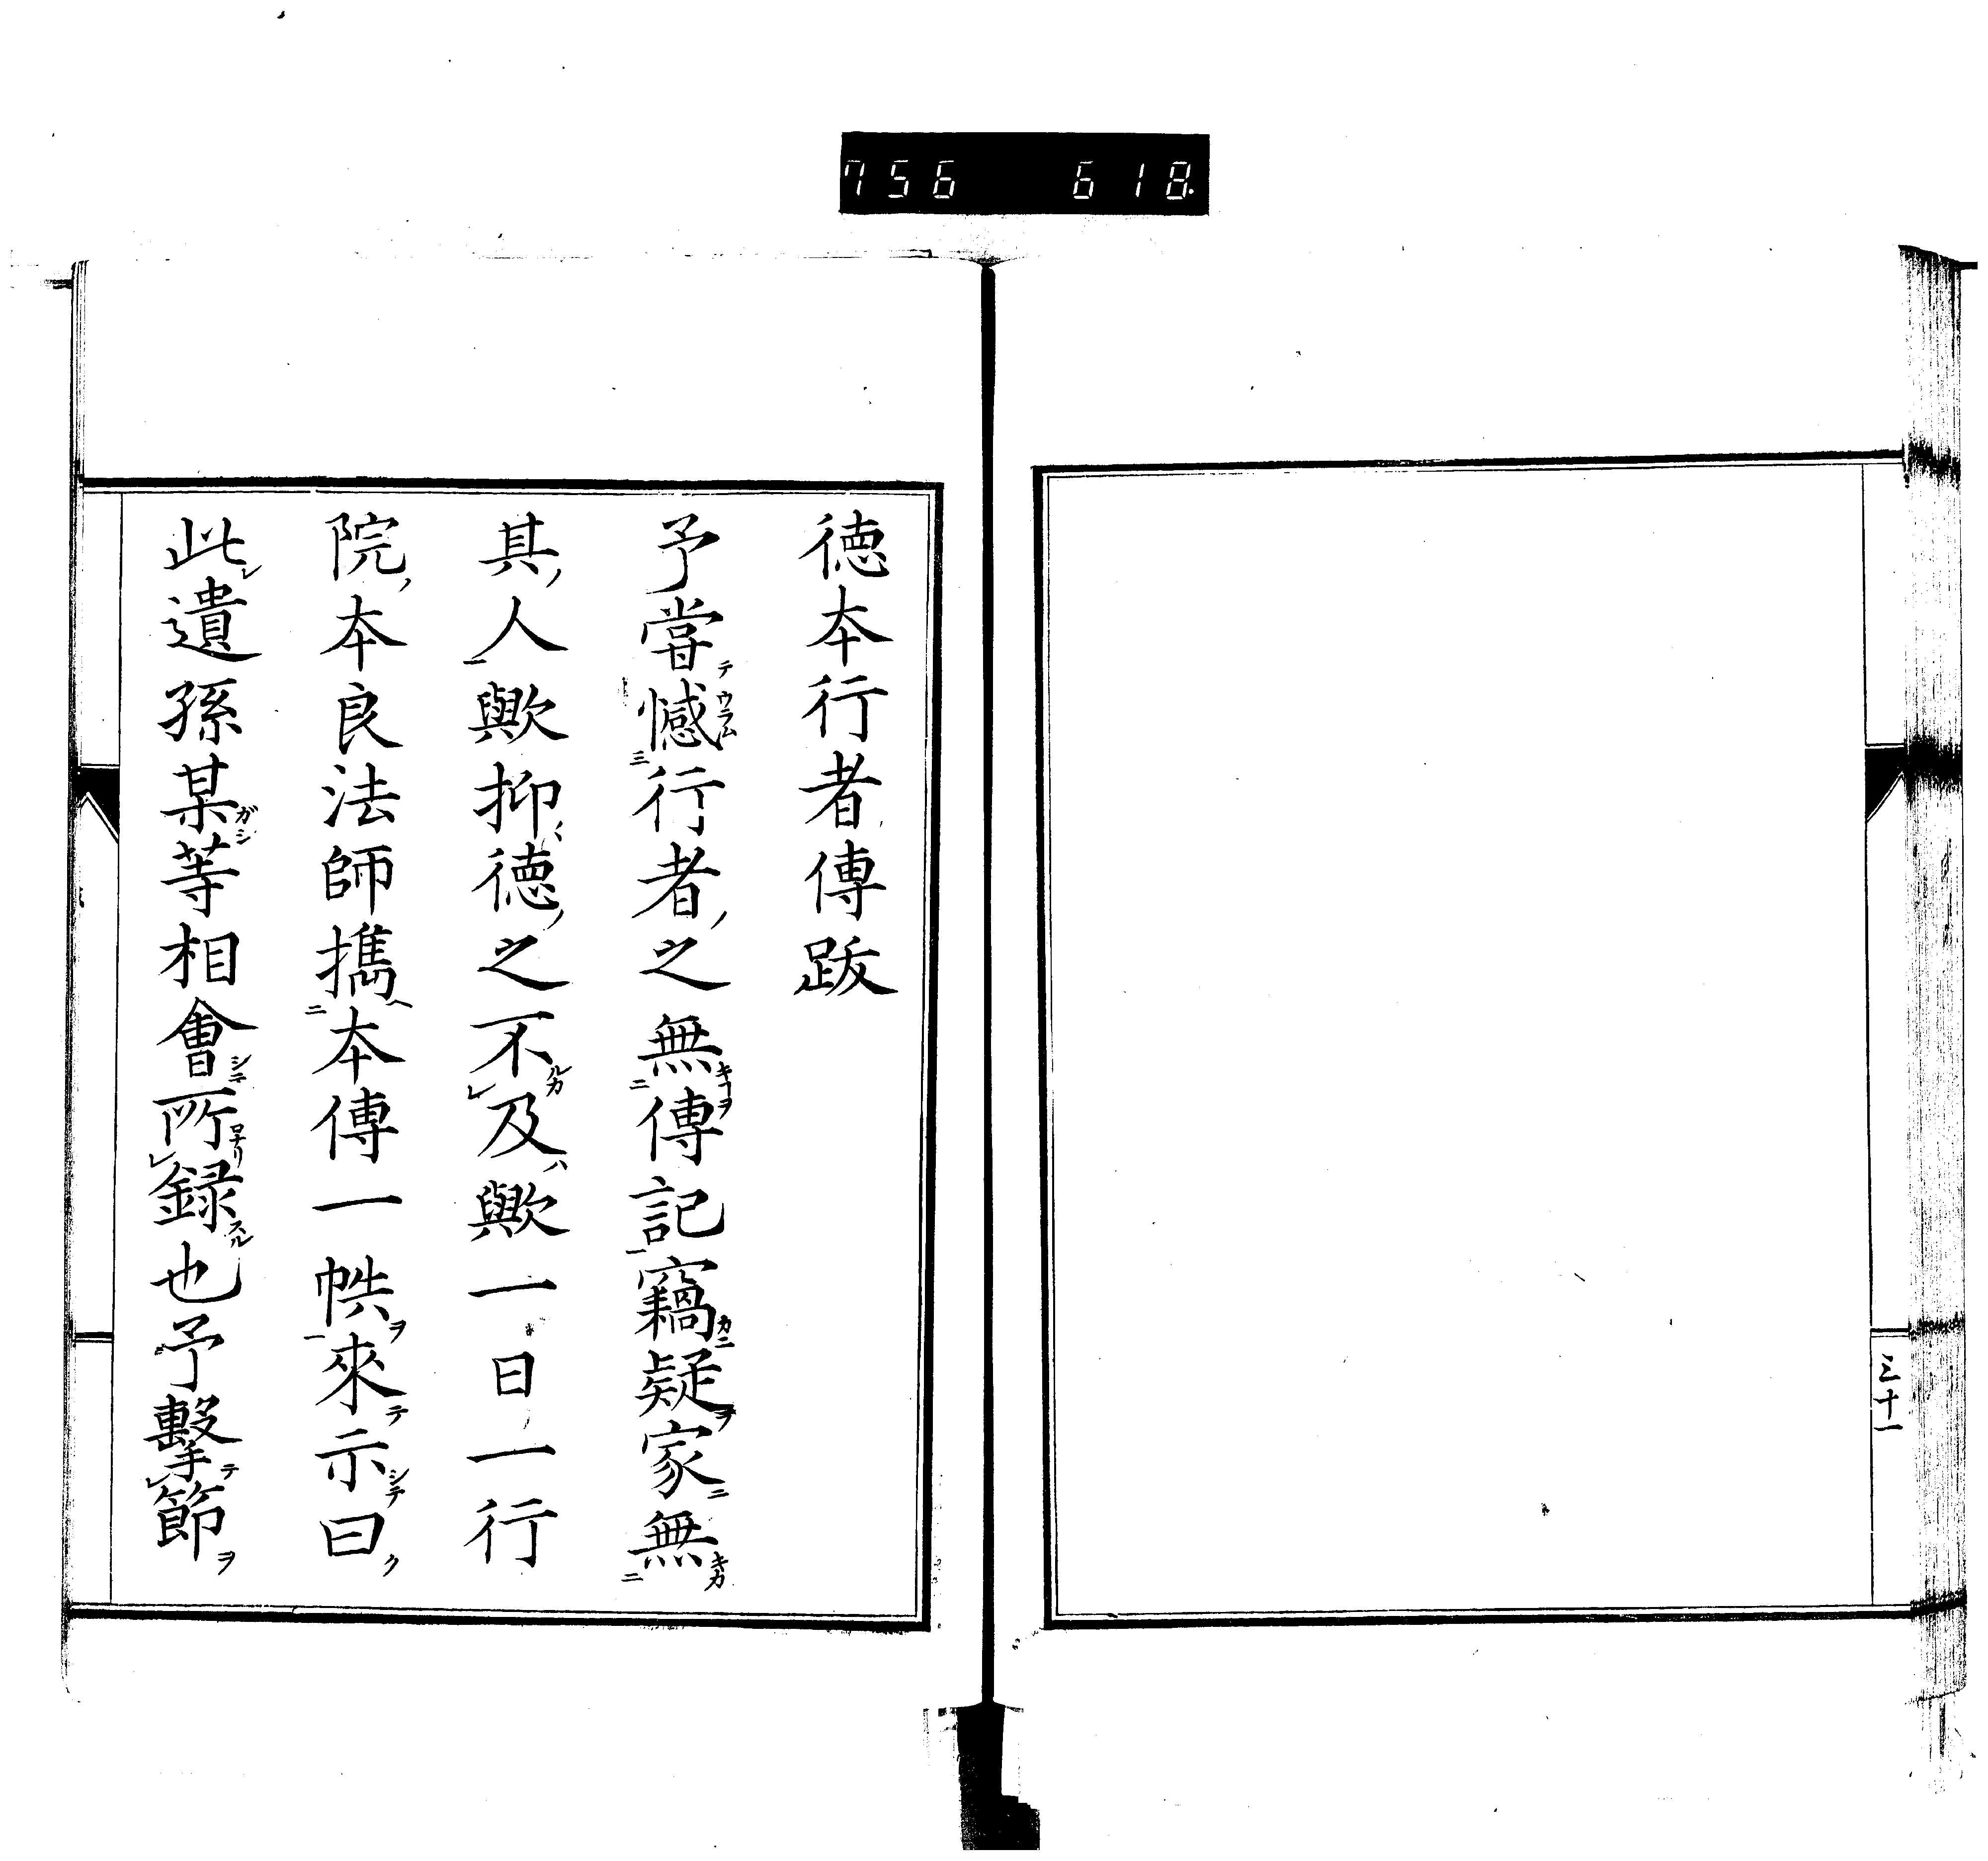 756 618.
三十一
德本行者傳跋
予嘗憾行者之無傳記竊疑家無
其人歟抑德之不及歟一日一行
院本良法師携本傳一帙來示曰
此遺孫某等相會所録也予擊節